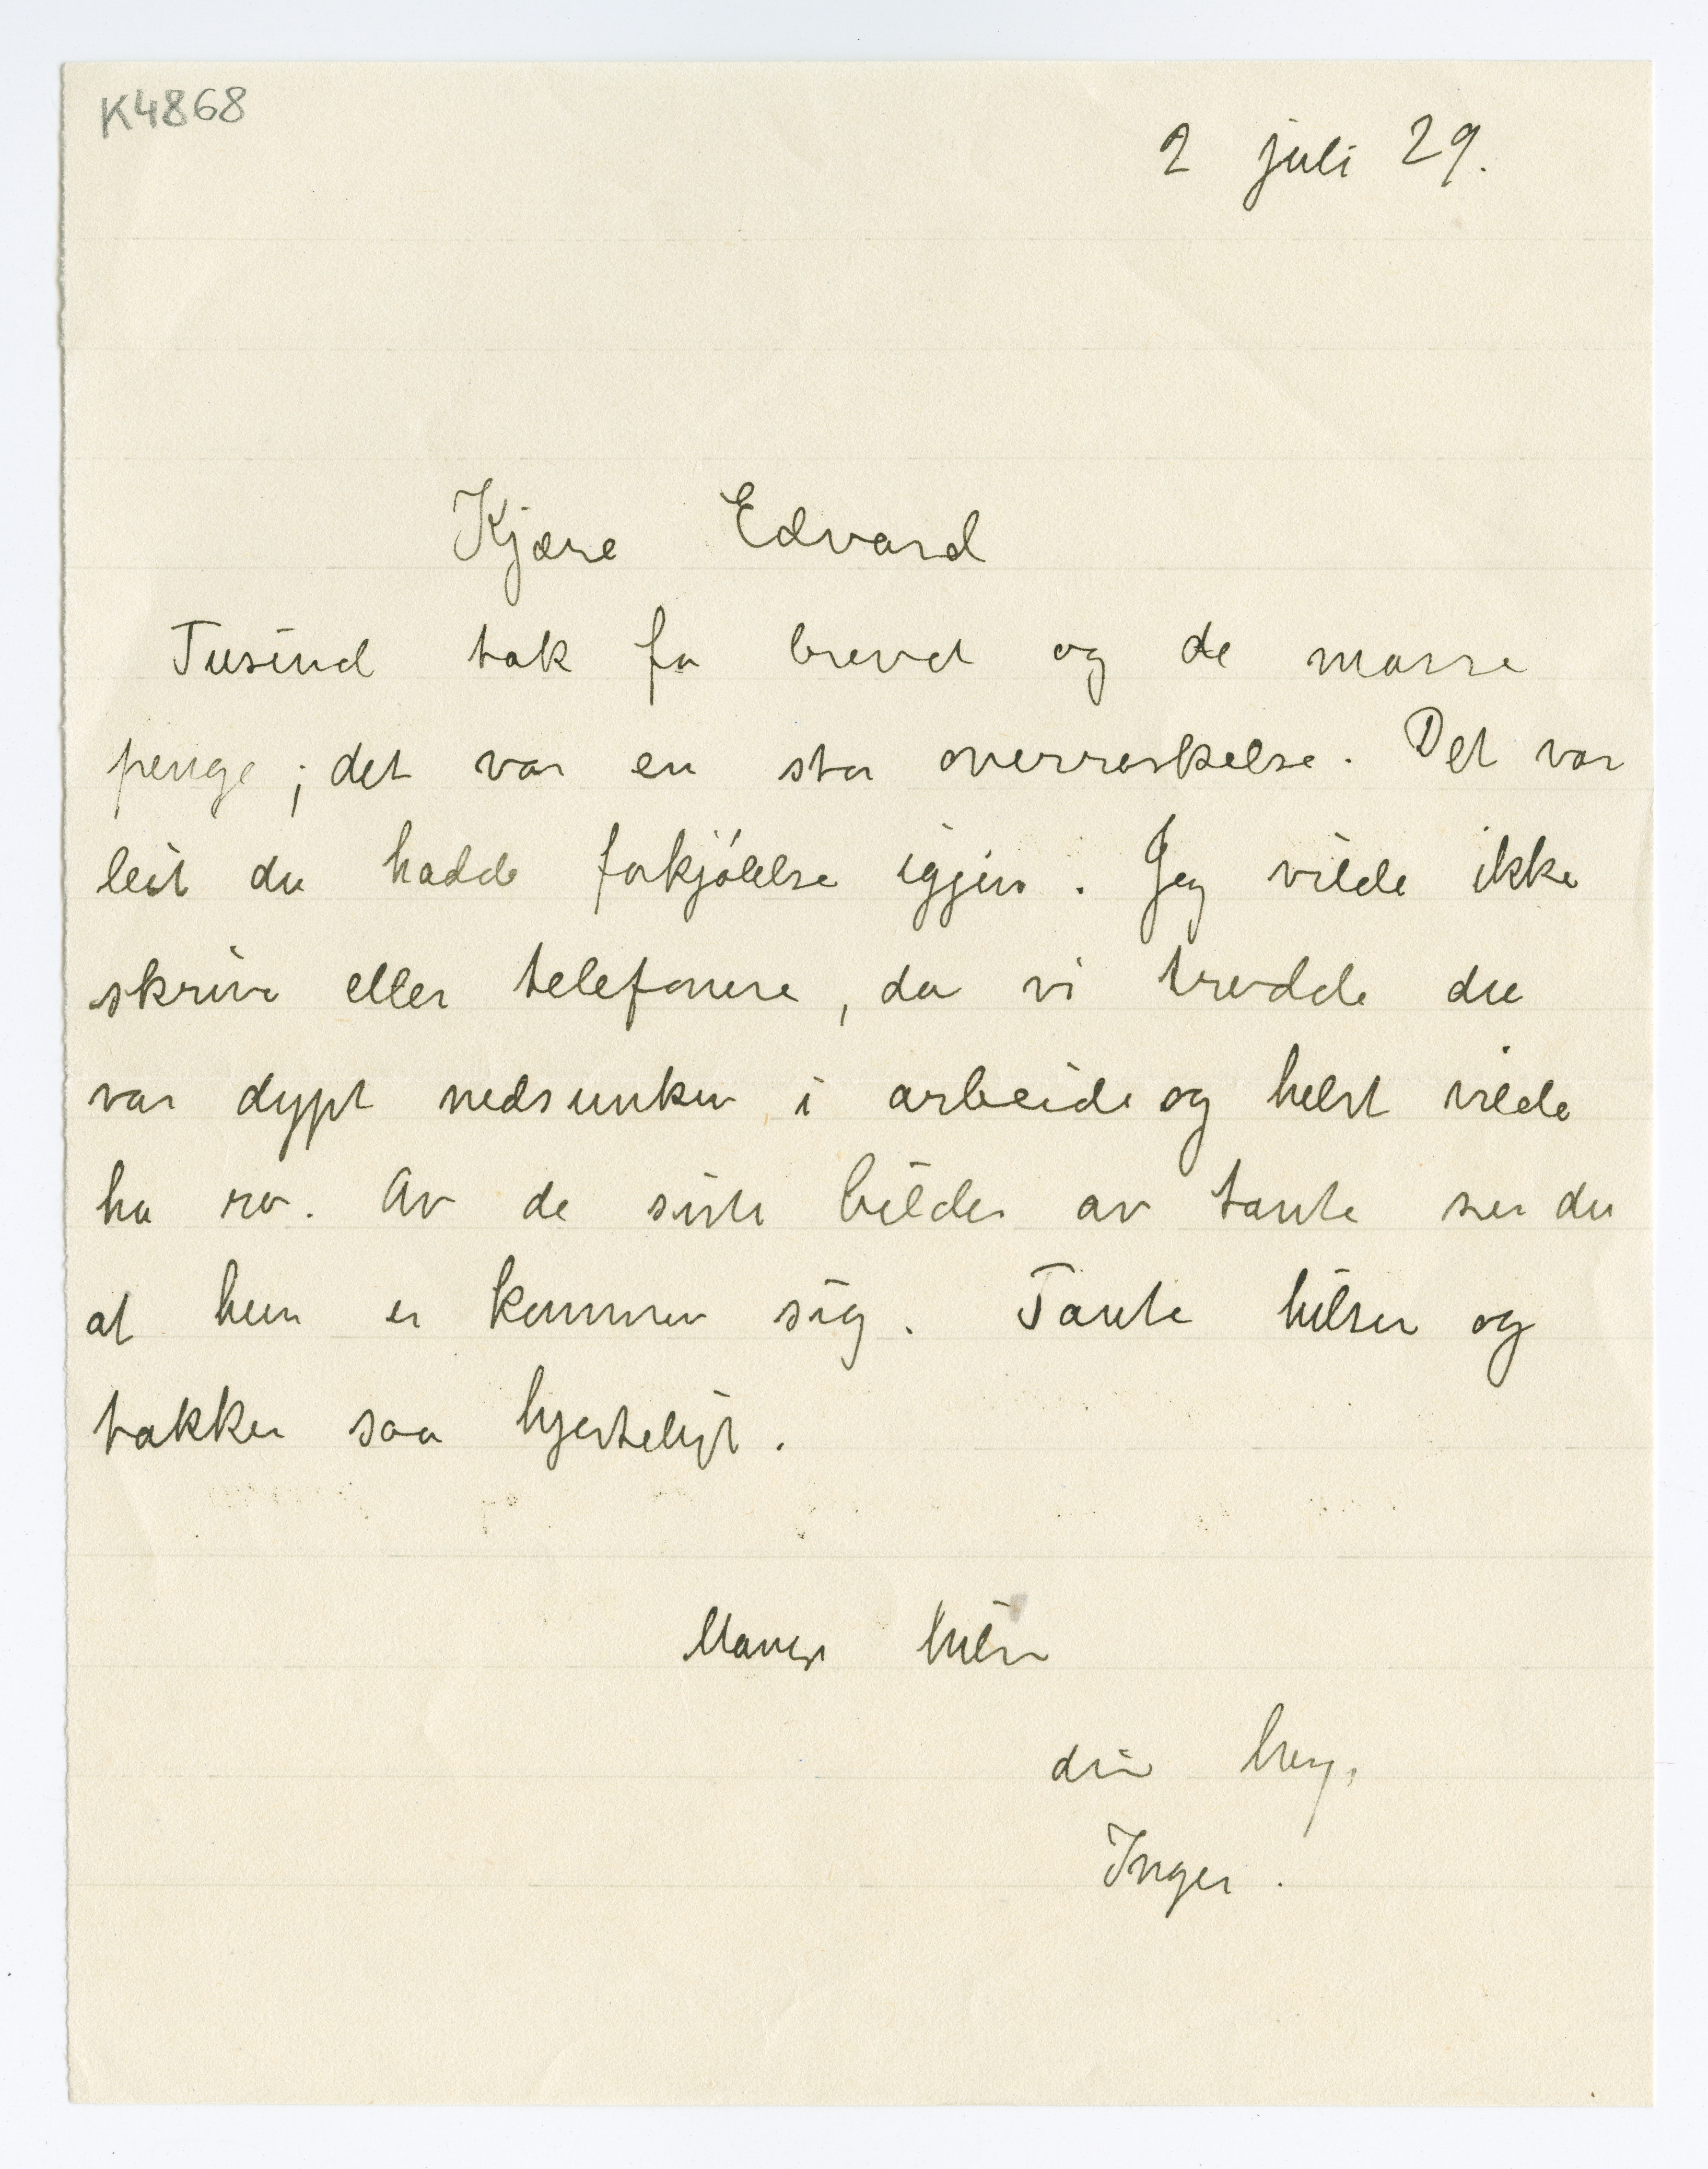 K4868
2 juli 29.
Kjære Edvard
Tusind tak for brevet og de masse
penge; det var en stor overraskelse. Det var
leit du hadde forkjólelse igjen. Jeg vilde ikke
skrive eller telefonere, da vi trodde du
var dypt nedsunken i arbeide og helst vilde
ha ro. Av de siste bilder av tante ser du
at hun er kommen sig. Tante hilser og
takker saa hjerteligt.
Mange hilsn
din heng.
Inger.